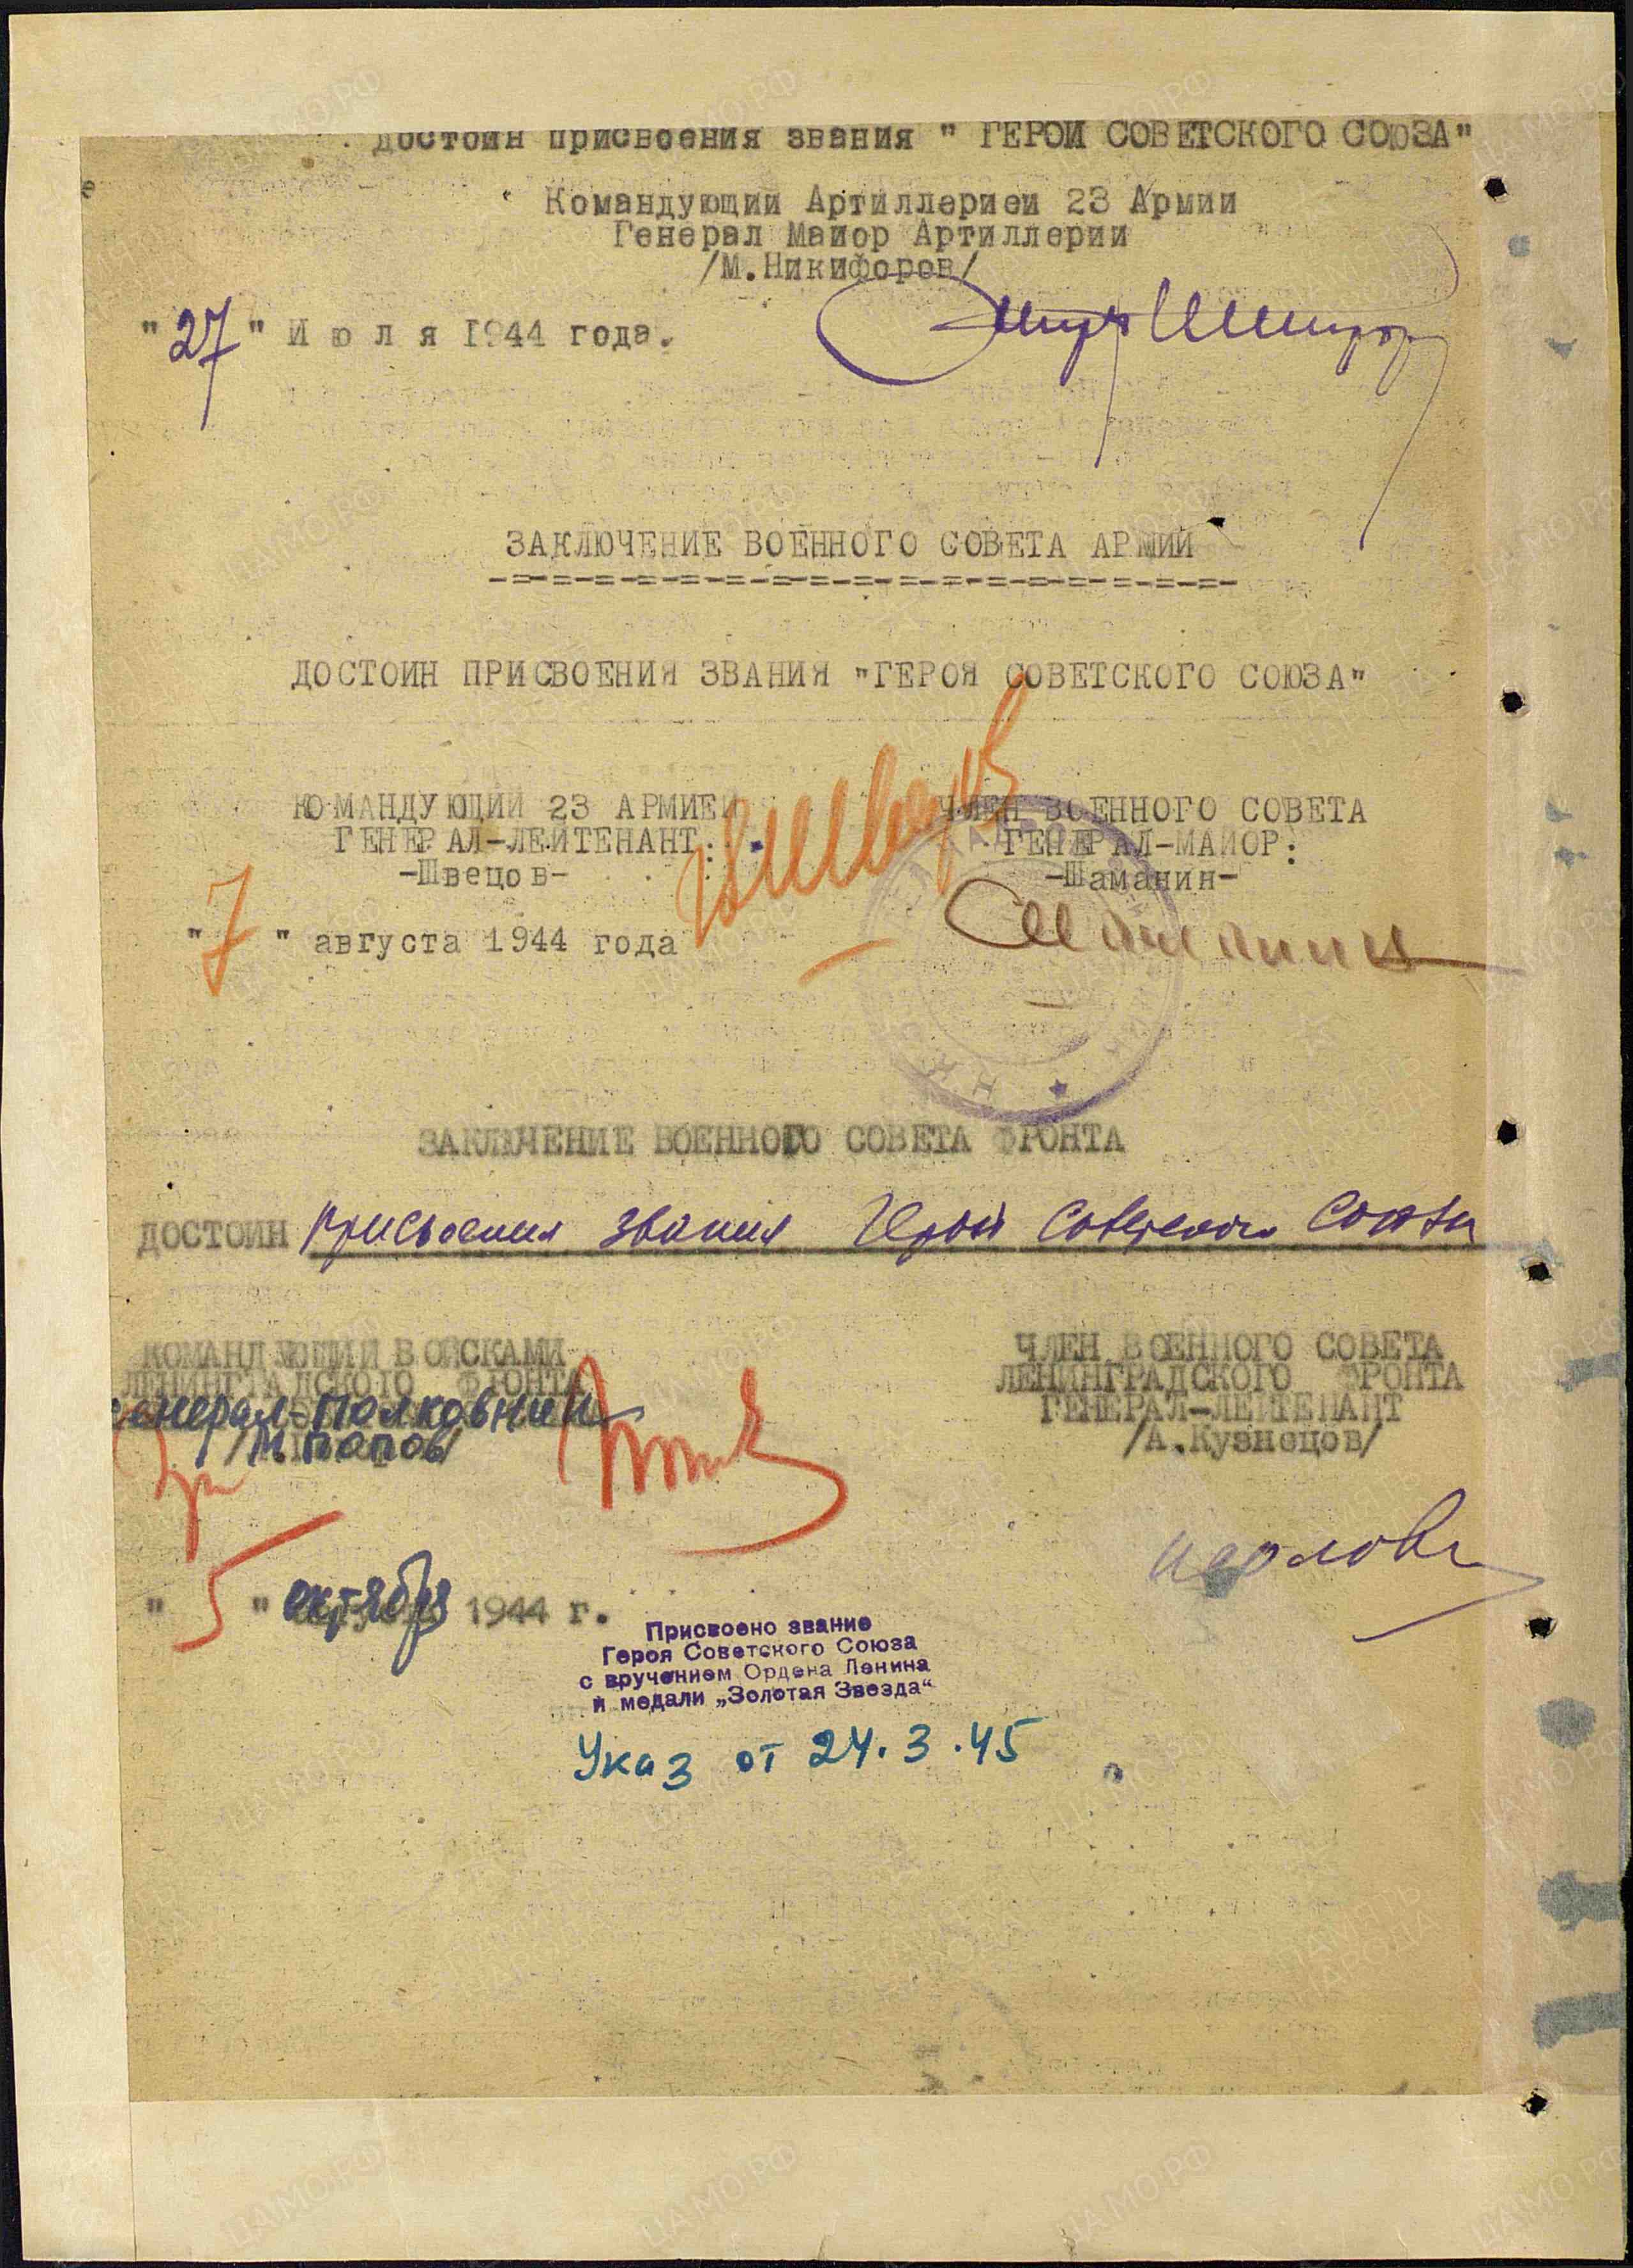 достойн присвоения звания " ГЕРОЙ СОВЕТСКОГО СОЮЗА"
Командующий Артиллерией 23 Армии
Генерал Майор Артиллерии
/М.Никифоров/
"27" Июля 1944 года.
ЗАКЛЮЧЕНИЕ ВОЕННОГО СОВЕТА АРМИИ
-=-=-=-=-=-=-=-=-=-=-=-=-=-=-=-=-=-
ДОСТОИН ПРИСВОЕНИЯ ЗВАНИЯ "ГЕРОЯ СОВЕТСКОГО СОЮЗА"
КОМАНДУЮЩИЙ 23 АРМИЕЙ
ГЕНЕРАЛ-ЛЕЙТЕНАНТ:
-Швецов-
ЧЛЕН ВОЕННОГО СОВЕТА
ГЕНЕРАЛ-МАЙОР:
-Шаманин-
"7" августа 1944 года
ЗАКЛЮЧЕНИЕ ВОЕННОГО СОВЕТА ФРОНТА
ДОСТОИН присвоения звания Герой Советского Союза
КОМАНДУЮЩИЙ ВОЙСКАМИ
ЛЕНИНГРАДСКОГО ФРОНТА
генерал-полковник
/М.Попов/
ЧЛЕН ВОЕННОГО СОВЕТА
ЛЕНИНГРАДСКОГО ФРОНТА
ГЕНЕРАЛ-ЛЕЙТЕНАНТ
/А.Кузнецов/
"5" октября 1944 г.
Присвоено звание
Героя Советского Союза
с вручением Ордена Ленина
и медали „Золотая Звезда“
Указ от 24.3.45